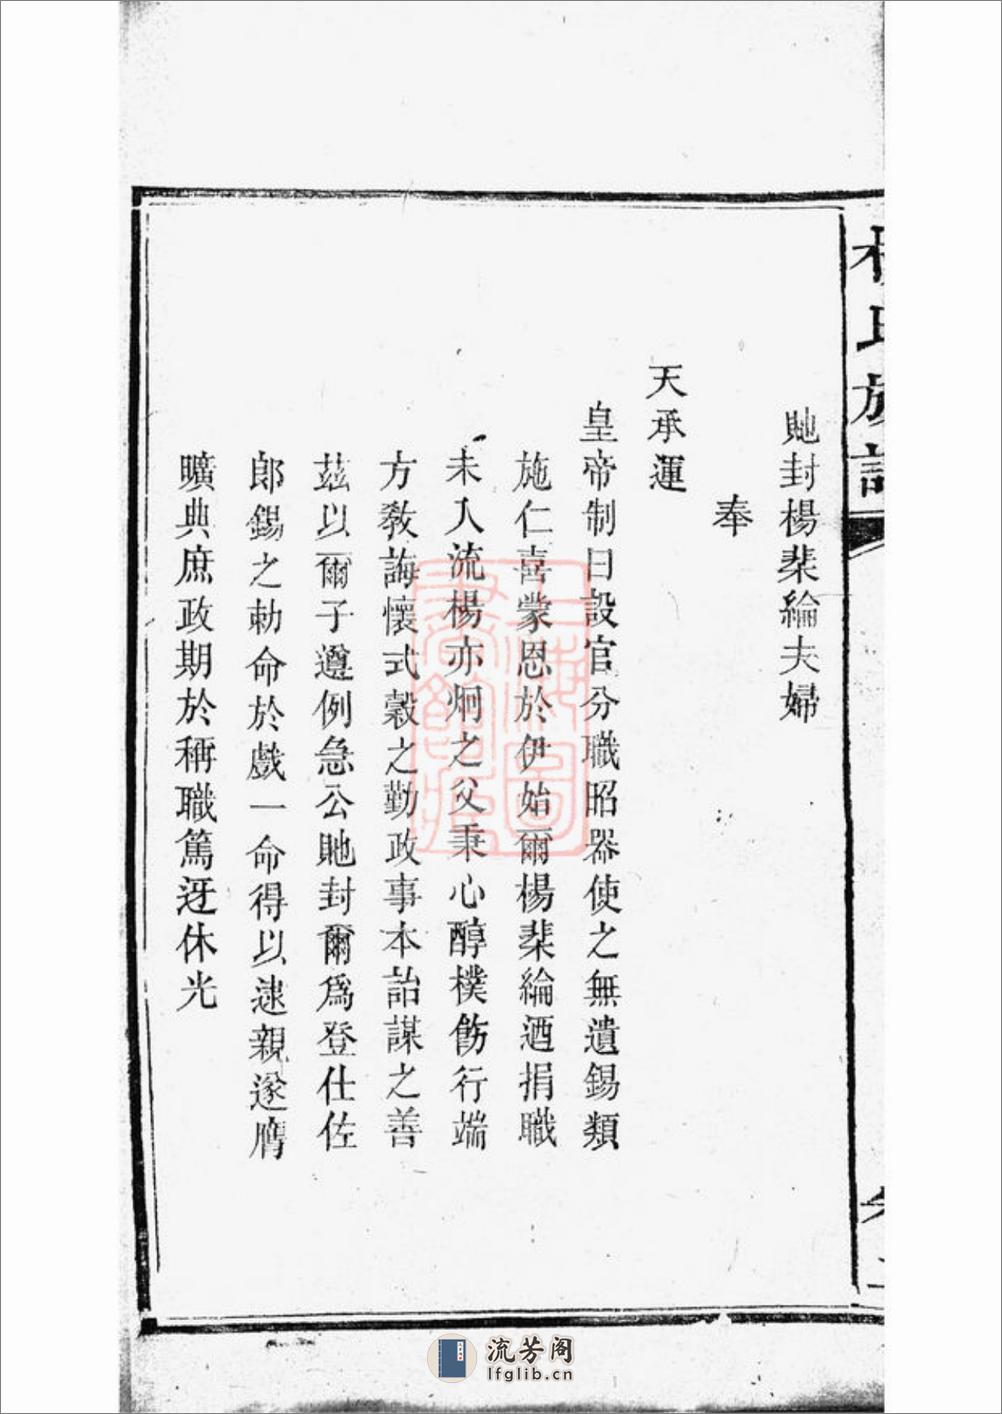 楊氏族譜
貤封楊棐綸夫婦
奉
天承運
皇帝制曰設官分職昭器使之無遺錫類
施仁喜蒙恩於伊始爾楊棐綸酒捐職
未入流楊亦炯之父秉心醇樸飭行端
方教誨懷式穀之勤政事本詒謀之善
茲以爾子遵例急公貤封爾爲登仕佐
郎錫之勅命於戲一命得以逮親遂膺
曠典庶政期於稱職篤迓休光
上海圖書館藏
流芳阁
lfglib.cn